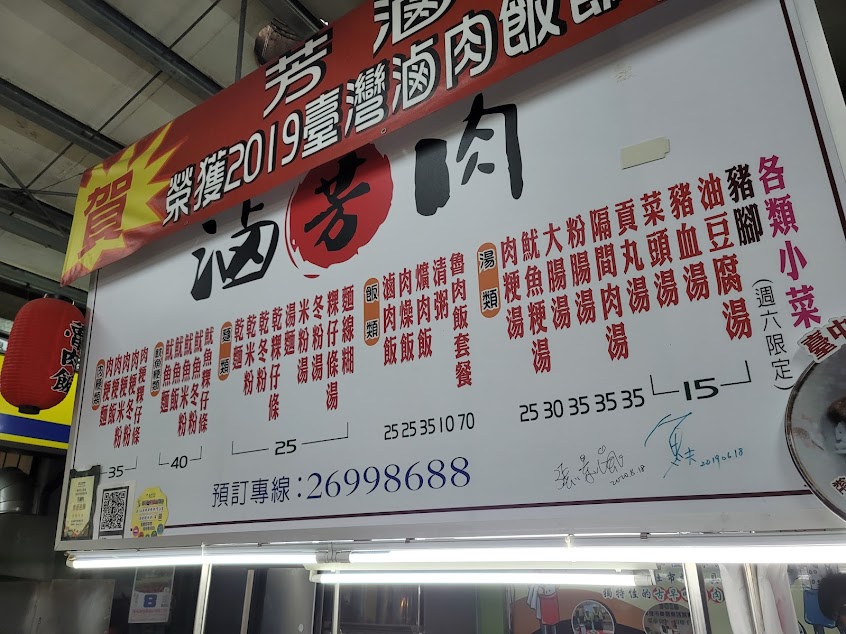 芳滷
賀
榮獲2019臺灣滷肉飯節
滷芳肉
各類小菜
豬腳(週六限定)
油豆腐湯
豬血湯
菜頭湯
貢丸湯
15
隔間肉湯
粉腸湯
大腸湯
魷魚梗湯
肉梗湯
湯類
25 30 35 35 35
魯肉飯套餐
清粥
爌肉飯
肉燥飯
滷肉飯
飯類
25 25 35 10 70
麵線糊
粿仔條湯
冬粉湯
米粉湯
湯麵
乾粿仔條
乾冬粉
乾米粉
乾麵
麵類
25
魷魚粿仔條
魷魚冬粉
魷魚米粉
魷魚飯
魷魚麵
魷魚梗類
40
肉梗粿仔條
肉梗冬粉
肉梗米粉
肉梗飯
肉梗麵
肉梗類
35
預訂專線:26998688
2020.8.18
20190618
魯肉飯
臺中
8
獨特佳的古早味肉